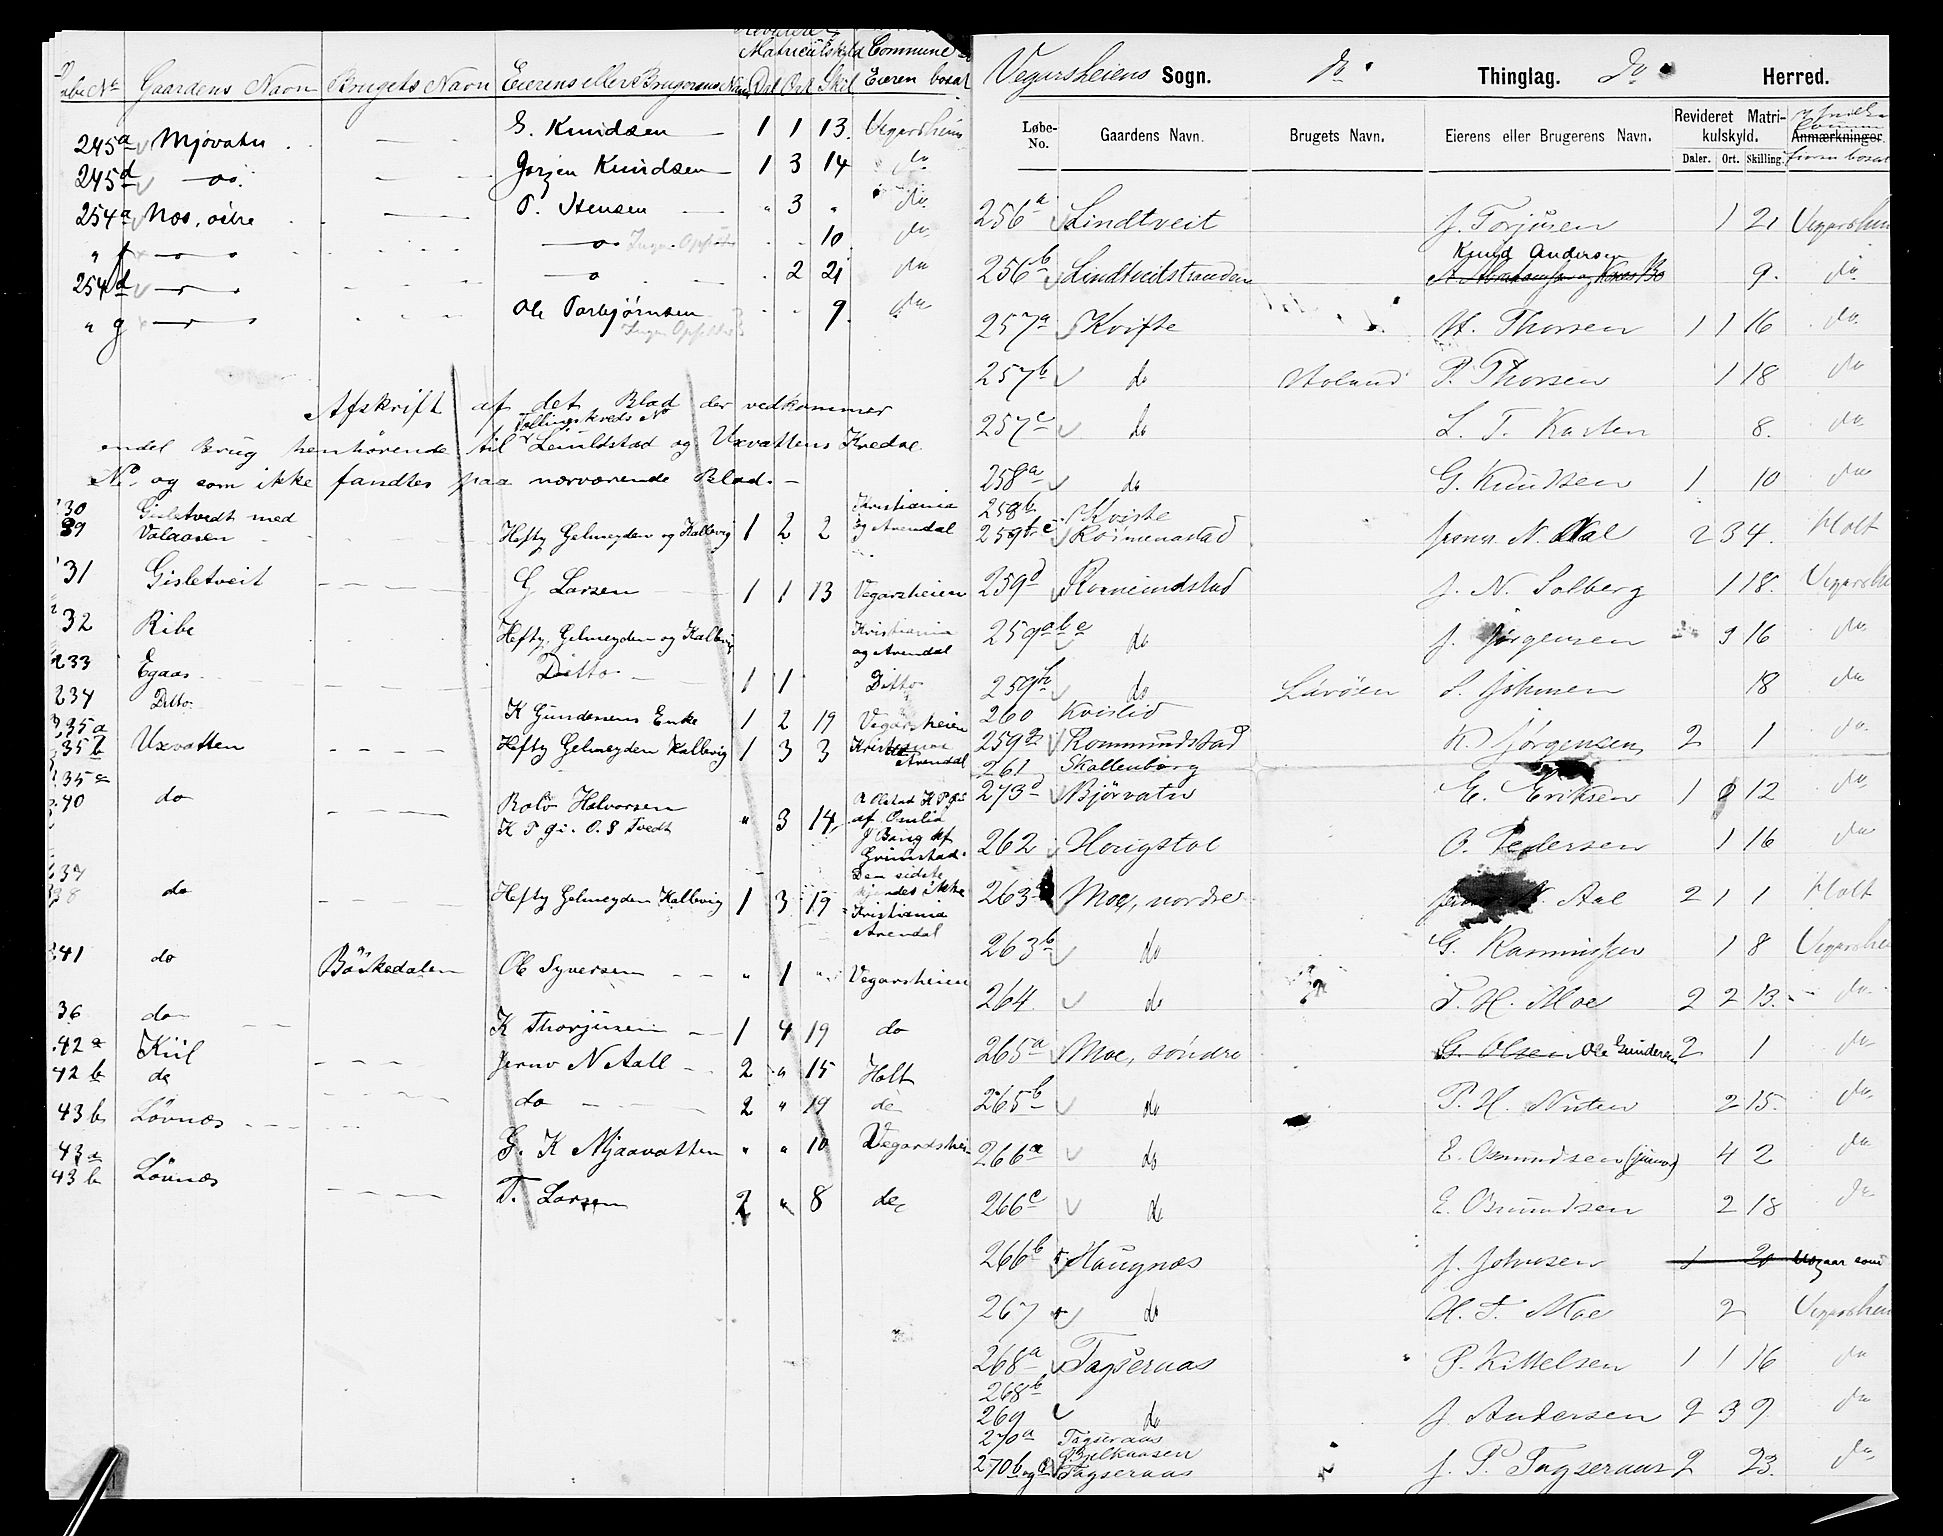 Løbe No Gaardens Navn Brugets Navn Eierens eller Brugerens Navn Matriculskyld Dal Ort Skil Commune Eieren bosat
245a Mjovatn — — S. Knudsen 1 1 13 Vegarsheien
245d do — — Jorgen Knudsen 1 3 14 do
254a Nos, oitre — T. Stensen " 3 " do
" f — o — — o — 10 do
254d — — o 2 21 do
" g — Ole Torbjørnsen 9 do
Afskrift af det Blad der vedkommer
Tellingskreds No
endel Brug henhörende til Leuildstad og Uxvattens Kredse
No. og som ikke fandtes paa nærværende Blad. —
30 Gisletvedt med Kristiania
39 Valaasen Hefty Gelmeyden og Kallevig 1 2 2 og Arendal
31 Gisletveit — — G Larsen 1 1 13 Vegarsheien
32 Ribe Hefty, Gelmeyden og Kallevig Kristiania og Arendal
233 Egaas — Ditto — 1 1 Ditto
234 Ditto K Gundersens Enke 1 2 19 Vegarsheien
35a
35b Uxvatten — — Hefty Gelmeyden Kallevig 1 3 3 Arendal
35c
40 do — — Halvorsen " 3 14
K P O. S Tvedt
af Omlid
J Bang af
Grimstad.
Den sidste
kjendes ikke
38 do — — Hefty Gelmeyden Kallevig 1 3 19 Kristiania
Arendal
41 do Böskedalen Ole Syversen — — " 1 " Vegarsheien
36 do — — K Thorjusen — 1 4 19 do
42a Kiil — — Jernv N Aall — 2 " 15 Holt
42b do — — do — — 2 " 19 do
43b Lövnæs — — G. K Mjaavatten " " 10 Vegardshei
43a
43b Lövnæs — — T. Larsen 2 " 8 do
Vegarsheiens Sogn. do Thinglag. do Herred.
Løbe-No. Gaardens Navn. Brugets Navn. Eierens eller Brugerens Navn. Revideret Matrikulskyld. Anmærkninger.
Daler. Ort. Skilling. Eieren bosat
256a Lindtveit J. Torjusen 1 21 Vegarsheien
Knud Andersen
256b Lindtveitstranden 9. do
257a Kvifte H. Thorsen 1 1 16 do
257b do Aaland P. Thorsen 1 18 do
257c do L. T. Kasten 8. do
258a do G. Knudsen 1 10 do
258b Kviste
259 Roimenastad Jernv. N. Aal 2 3 4. Holt
259d Romeindstad J. N. Solberg 1 18. Vegarshei
259a b e do J. Jörgensen 3 16 do
259h do Lövöen S. Johnsen 18 do
260 Kvislid
259g Rommundstad K. Jörgensen 2 1 do
261 Skallenborg
273d Bjørvatn E. Eriksen 1 12 do
262 Hougstoe O. Pedersen 1 16 do
263a Moe, nordre N. Aal 2 1 1 Holt
263b do G. Rasmussen 1 8 Vegarshei
264 do T. H. Moe 2 2 13. do
265a Moe, söndre G. Olsen Ole Gundersen 2 1 do
265b do P. H. Nuten 2 15. do
266a do E. Osmundsen (junior) 4 2 do
266c do E. Osmundsen 2 18 do
266b Haugnæs J. Johnsen 1 20 Udgaar som
267 do H. T. Moe 2 Vegarshei
268a Tagseraas P. Kittelsen 1 1 16 do
268b
269 do J. Andersen 2 3 9 do
270a Tagseraas
Bjelkaasen
270b og d Tagseraas J. P. Tagseraas 2 23. do